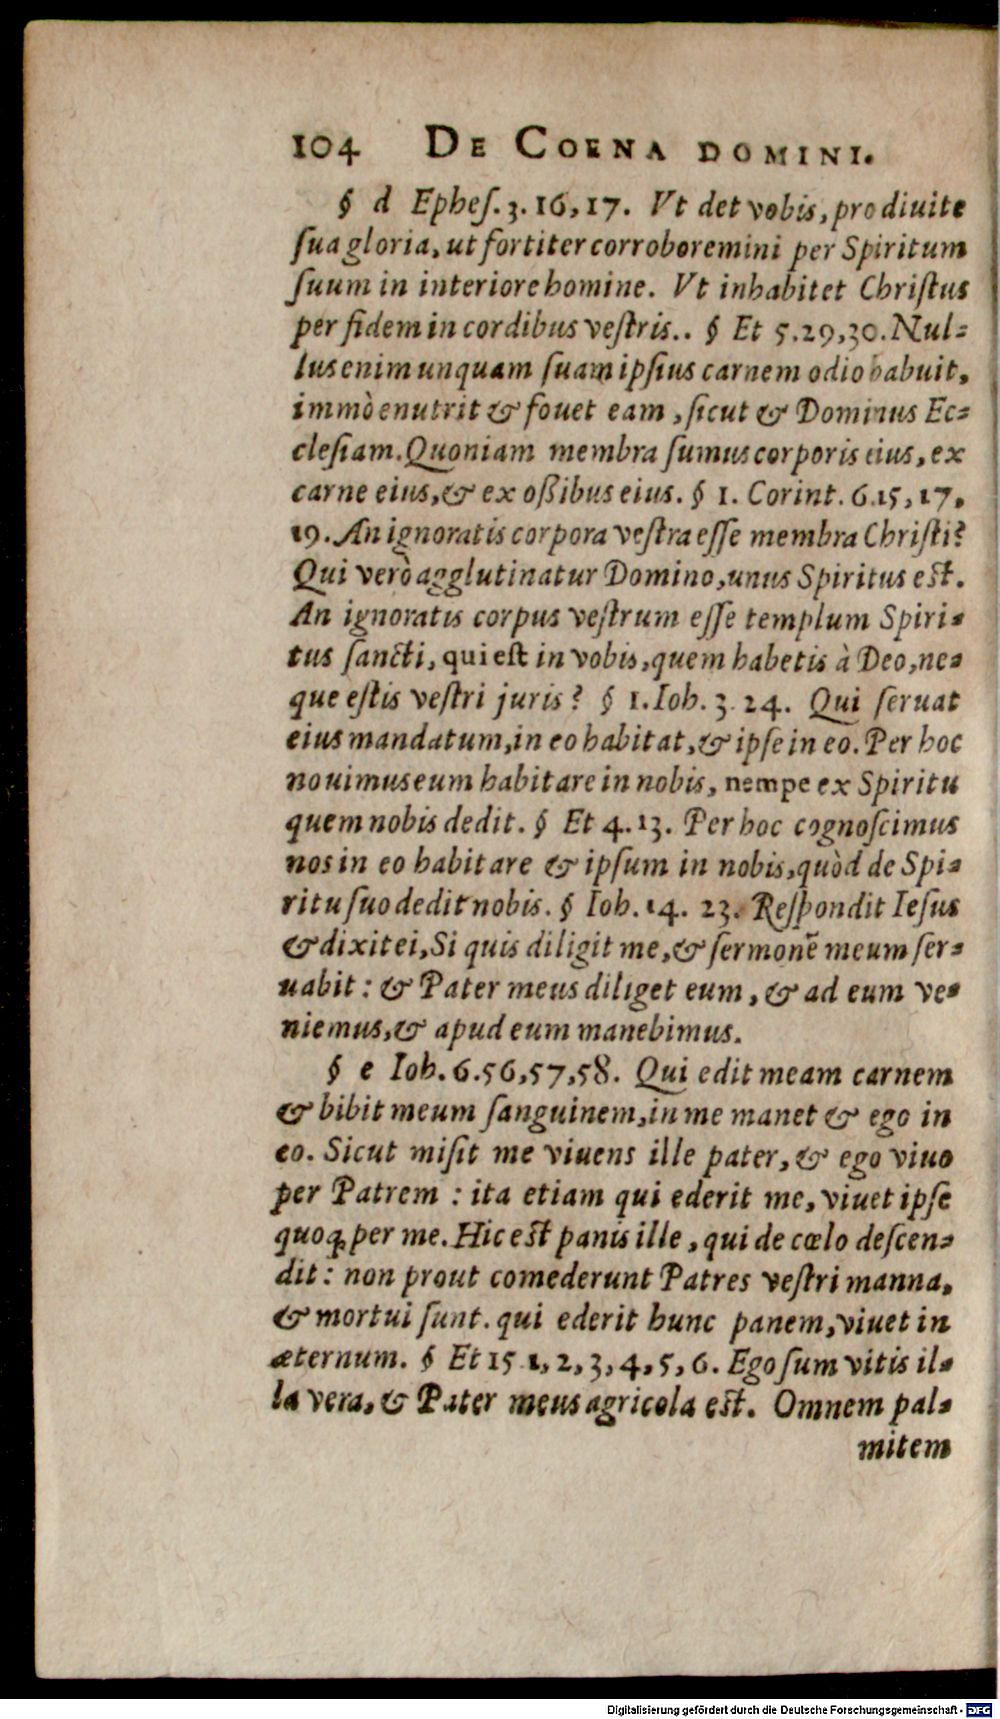 104 DE COENA DOMINI.
§ d Epheſ. 3. 16, 17. Vt det vobis, pro diuite
ſua gloria, ut fortiter corroboremini per Spiritum
ſuum in interiore homine. Vt inhabitet Chriſtus
per fidem in cordibus veſtris.. § Et 5. 29, 30. Nul-
lus enim unquam ſuam ipſius carnem odio habuit,
immò enutrit & fouet eam, ſicut & Dominus Ec-
cleſiam. Quoniam membra ſumus corporis eius, ex
carne eius, & ex oßibus eius. § 1. Corint. 6. 15, 17,
19. An ignoratis corpora veſtra eſſe membra Chriſti?
Qui verò agglutinatur Domino, unus Spiritus eſt.
An ignoratis corpus veſtrum eſſe templum Spiri-
tus ſancti, qui eſt in vobis, quem habetis à Deo, ne-
que eſtis veſtri juris? § 1. Ioh. 3. 24. Qui ſeruat
eius mandatum, in eo habitat, & ipſe in eo. Per hoc
nouimus eum habitare in nobis, nempe ex Spiritu
quem nobis dedit. § Et 4. 13. Per hoc cognoſcimus
nos in eo habitare & ipſum in nobis, quòd de Spi-
ritu ſuo dedit nobis. § Ioh. 14. 23. Reſpondit Ieſus
& dixit ei, Si quis diligit me, & ſermonē meum ſer-
uabit: & Pater meus diliget eum, & ad eum ve-
niemus, & apud eum manebimus.
§ e Ioh. 6. 56, 57, 58. Qui edit meam carnem
& bibit meum ſanguinem, in me manet & ego in
eo. Sicut miſit me viuens ille pater, & ego viuo
per Patrem : ita etiam qui ederit me, viuet ipſe
quoq; per me. Hic eſt panis ille, qui de cœlo deſcen-
dit: non prout comederunt Patres veſtri manna,
& mortui ſunt. qui ederit hunc panem, viuet in
æternum. § Et 15 1, 2, 3, 4, 5, 6. Ego ſum vitis il-
la vera, & Pater meus agricola eſt. Omnem pal-
mitem
Digitalisierung gefördert durch die Deutsche Forschungsgemeinschaft - DFG